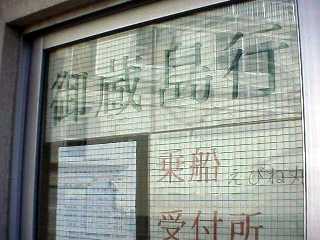 御蔵島行
乗船 えびね丸
受付所